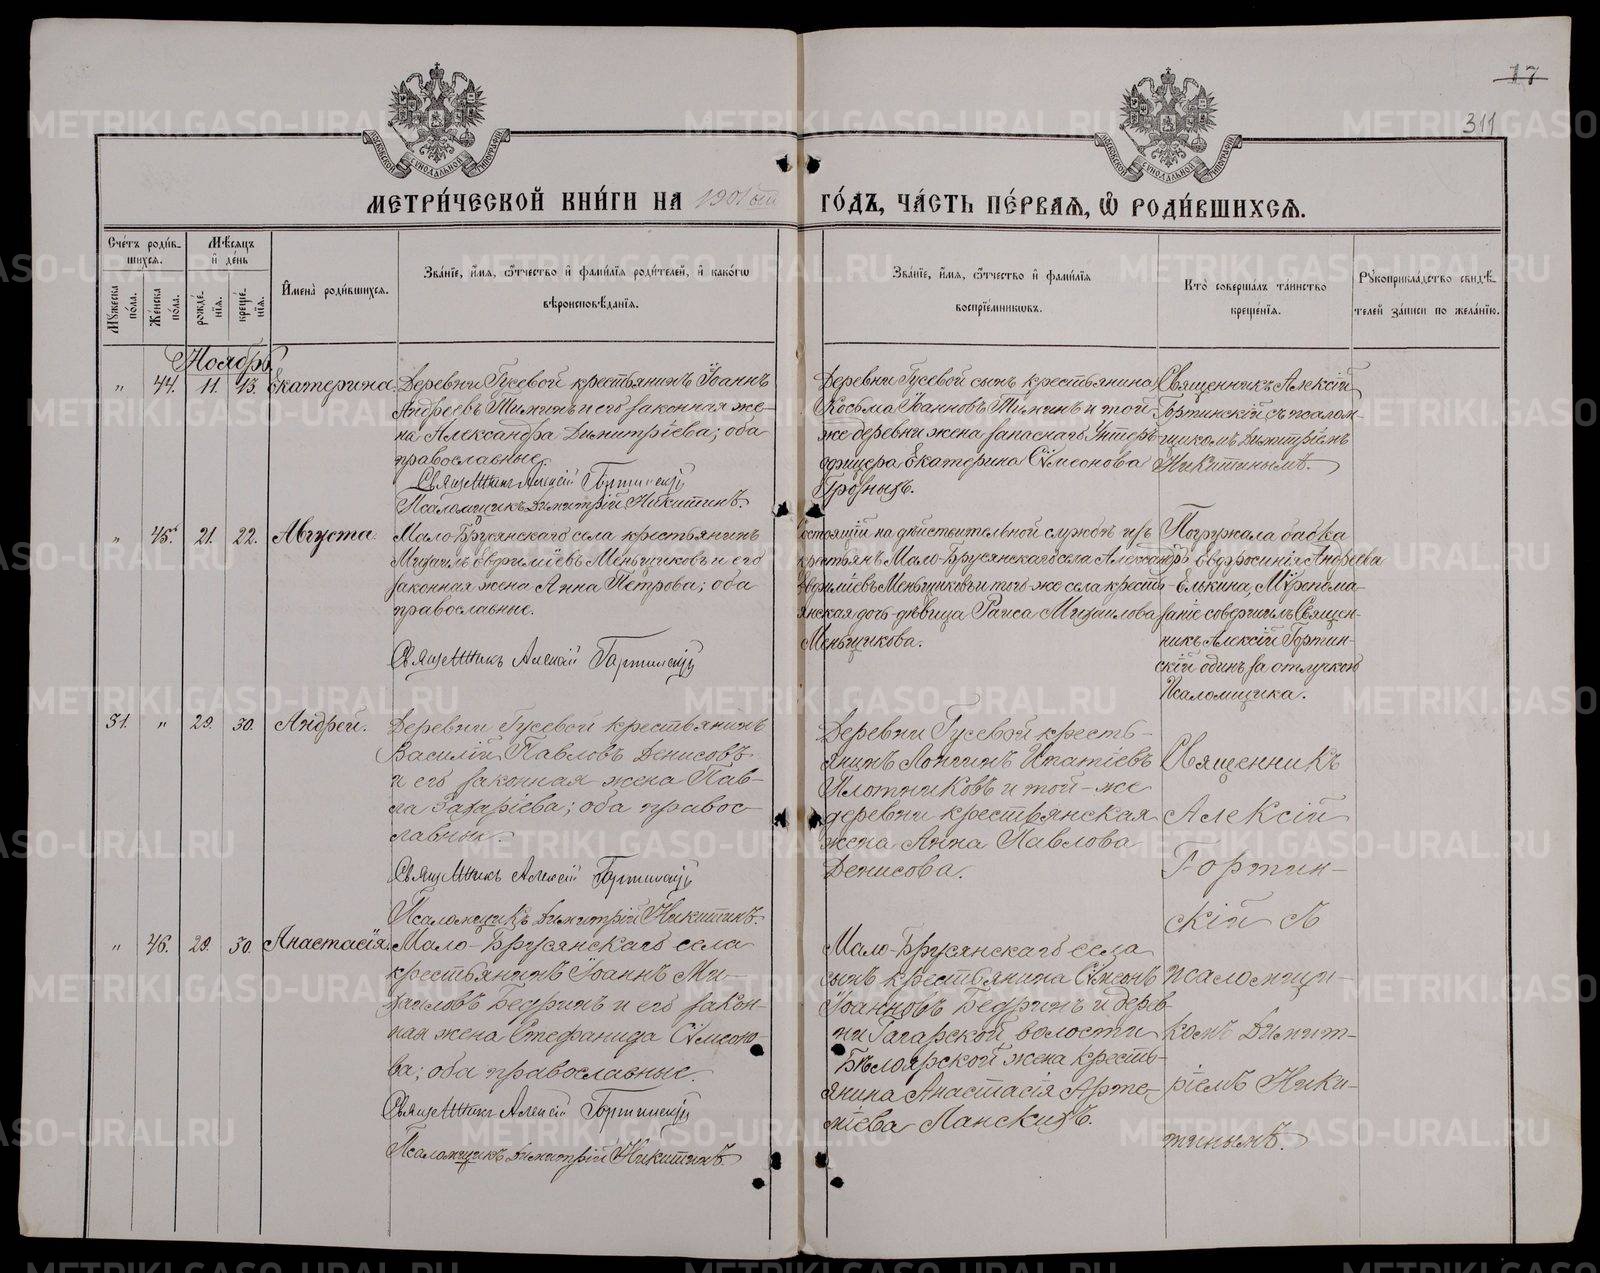 17
311
МОСКОВСКОЙ СѴНОДАЛЬНОЙ ТИПОГРАФІИ
МОСКОВСКОЙ СѴНОДАЛЬНОЙ ТИПОГРАФІИ
МЕТРИ́ЧЕСКОЙ КНИ́ГИ НА 1901ый ГО́ДЪ, ЧА́СТЬ ПЕ́РВАѦ, Ѡ҆ РОДИ́ВШИХСѦ.
Сче́тъ роди́в-
шихсѧ.
Мѣ́сѧцъ
и҆ де́нь
Мꙋ́жеска
по́ла.
Же́нска
по́ла.
рожде́-
нїѧ.
креще́-
нїѧ.
И҆мена̀ роди́вшихсѧ.
Зва́нїе, и҆́мѧ, ѻ҆́тчество и҆ фамн́лїѧ роди́телей, и҆ како́гѡ
вѣроисповѣ́данїѧ.
Зва́нїе, и҆́мѧ, ѻ҆́тчество и҆ фами́лїѧ
воспрїе́мникѡвъ.
Кто̀ соверша́лъ та́инство
креще́нїѧ.
Рꙋкоприкла́дство свидѣ́-
телей за́писи по жела́нїю.
Ноябрь
„ 44. 11. 13. Екатерина.
Деревни Гусевой крестьянинъ Іоаннъ
Андреевъ Тиминъ и его законная же-
на Александра Димитріева; оба
православные.
Священникъ Алексій Гортинскій
Псаломщикъ Димитрій Никитинъ.
Деревни Гусевой сынъ крестьянина
Косьма Іоанновъ Тиминъ и той
же деревни жена запаснаго Унтеръ
офицера Екатерина Сѵмеонова
Грозныхъ.
Священникъ Алексій
Гортинскій съ псалом-
щикомъ Димитріемъ
Никитинымъ.
„ 45. 21. 22. Августа.
Мало-Брусянскаго села крестьянинъ
Михаилъ Евфиміевъ Меньщиковъ и его
законная жена Анна Петрова; оба
православные.
Священникъ Алексій Гортинскій
Состоящій на дѣйствительной службѣ изъ
крестьянъ Мало-Брусянскаго села Александръ
Евфиміевъ Меньщиковъ и того же села кресть-
янская дочь-дѣвица Раиса Михаилова
Меньщикова.
Погружала бабка
Евфросинія Андреева
Елькина, Мѵропома-
заніе совершилъ Священ-
никъ Алексій Гортин-
скій одинъ за отлучкою
Псаломщика.
31. „ 29. 30. Андрей.
Деревни Гусевой крестьянинъ
Василій Павловъ Денисовъ
и его законная жена Пав-
ла Захаріева; оба правос-
лавные.
Священникъ Алексій Гортинскій
Псаломщикъ Димитрій Никитинъ.
Деревни Гусевой кресть-
янинъ Лонгинъ Ипатіевъ
Плотниковъ и той-же
деревни крестьянская
жена Анна Павлова
Денисова.
Священникъ
Алексій
Гортин-
скій съ
„ 46. 28. 30. Анастасія.
Мало-Брусянскаго села
крестьянинъ Іоаннъ Ми-
хаиловъ Бедринъ и его закон-
ная жена Стефанида Сѵмеоно-
ва; оба православные.
Священникъ Алексій Гортинскій
Псаломщикъ Димитрій Никитинъ.
Мало-Брусянскаго села
сынъ крестьянина Сѵмеонъ
Іоанновъ Бедринъ и дерев-
ни Гагарской, волости
Бѣлоярской жена кресть-
янина Анастасія Арте-
міева Ланскихъ.
псаломщи-
комъ Димит-
ріемъ Ники-
тинымъ.
METRIKI.GASO-URAL.RU